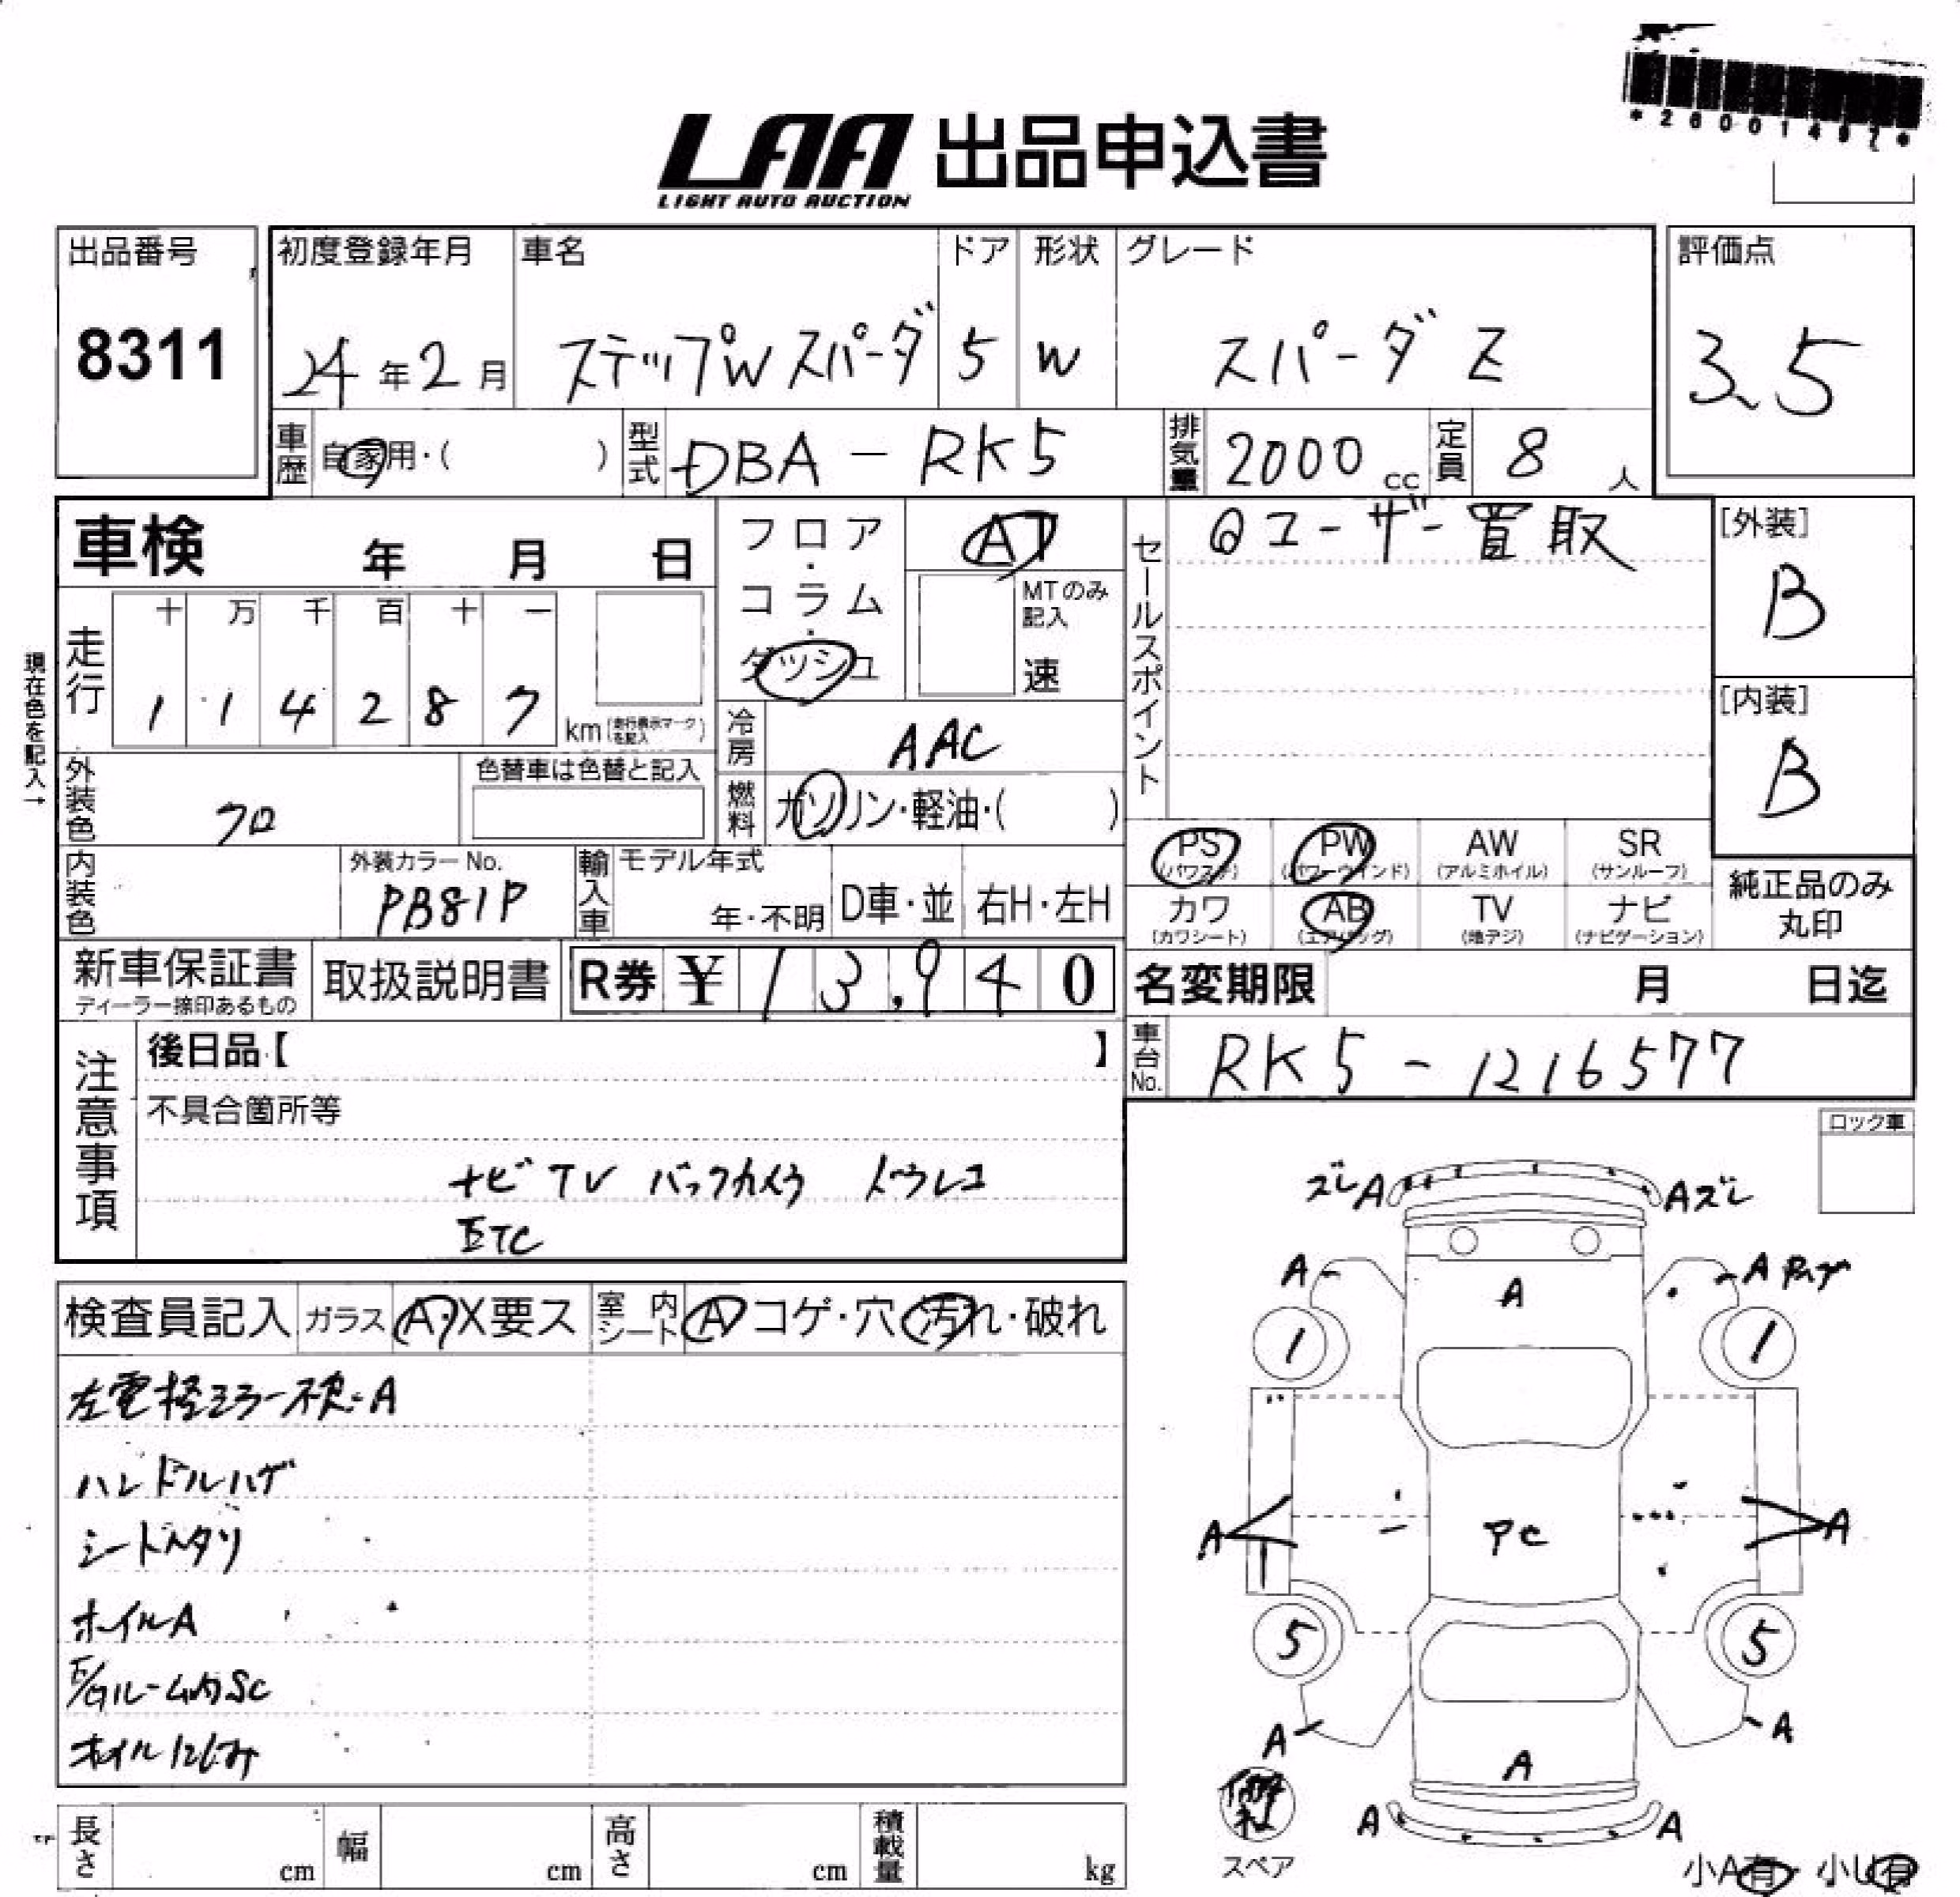 *26001497*
LAA 出品申込書
LIGHT AUTO AUCTION
出品番号
8311
初度登録年月
24年2月
車名
ステップW スパーダ
ドア
5
形状
W
グレード
スパーダ Z
評価点
3.5
車歴
自家用・( )
型式
DBA - RK5
排気量
2000 cc
定員
8 人
車検 年 月 日
フロア・コラム・ダッシュ
AT
MTのみ記入
速
セールスポイント
ユーザー買取
[外装]
B
[内装]
B
現在色を記入→
走行
十 万 千 百 十 一
1 1 4 2 8 7
km(走行表示マークを記入)
冷房
AAC
燃料
ガソリン・軽油・( )
外装色
クロ
色替車は色替と記入
内装色
外装カラーNo.
PB81P
輸入車
モデル年式
年・不明
D車・並
右H・左H
PS
(パワステ)
PW
(パワーウインド)
AW
(アルミホイル)
SR
(サンルーフ)
カワ
(カワシート)
AB
(エアバッグ)
TV
(地デジ)
ナビ
(ナビゲーション)
純正品のみ
丸印
新車保証書
ディーラー捺印あるもの
取扱説明書
R券 ¥13,940
名変期限 月 日迄
車台No.
RK5 - 1216577
注意事項
後日品【 】
不具合箇所等
ナビ TV バックカメラ ドラレコ
ETC
ロック車
検査員記入
ガラス
A・X要ス
室内シート
A コゲ・穴・汚れ・破れ
左電格ミラー不良・A
ハンドルハゲ
シートヘタリ
ホイルA
E/Gルーム内SC
オイルにじみ
ズレA
Aズレ
A
A
A
1
1
A
PC
A
5
5
A
A
A
A
A
スペア
小A有・小U有
長さ cm
幅 cm
高さ cm
積載量 kg